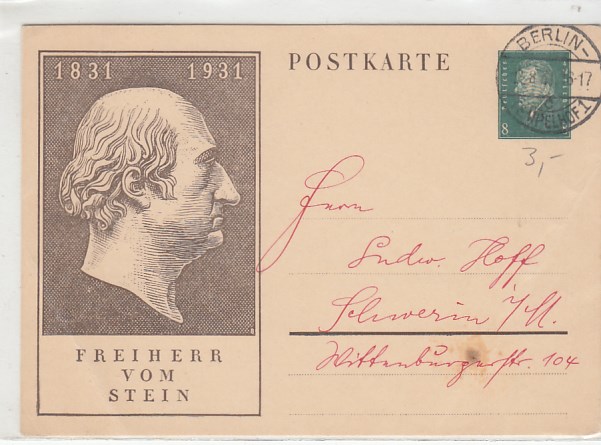 1831 1931
FREIHERR
VOM
STEIN
POSTKARTE
BERLIN-
-17
8
3,-
Herrn
Ludw. Hoff
Schwerin i/M.
Wittenburgerstr. 104